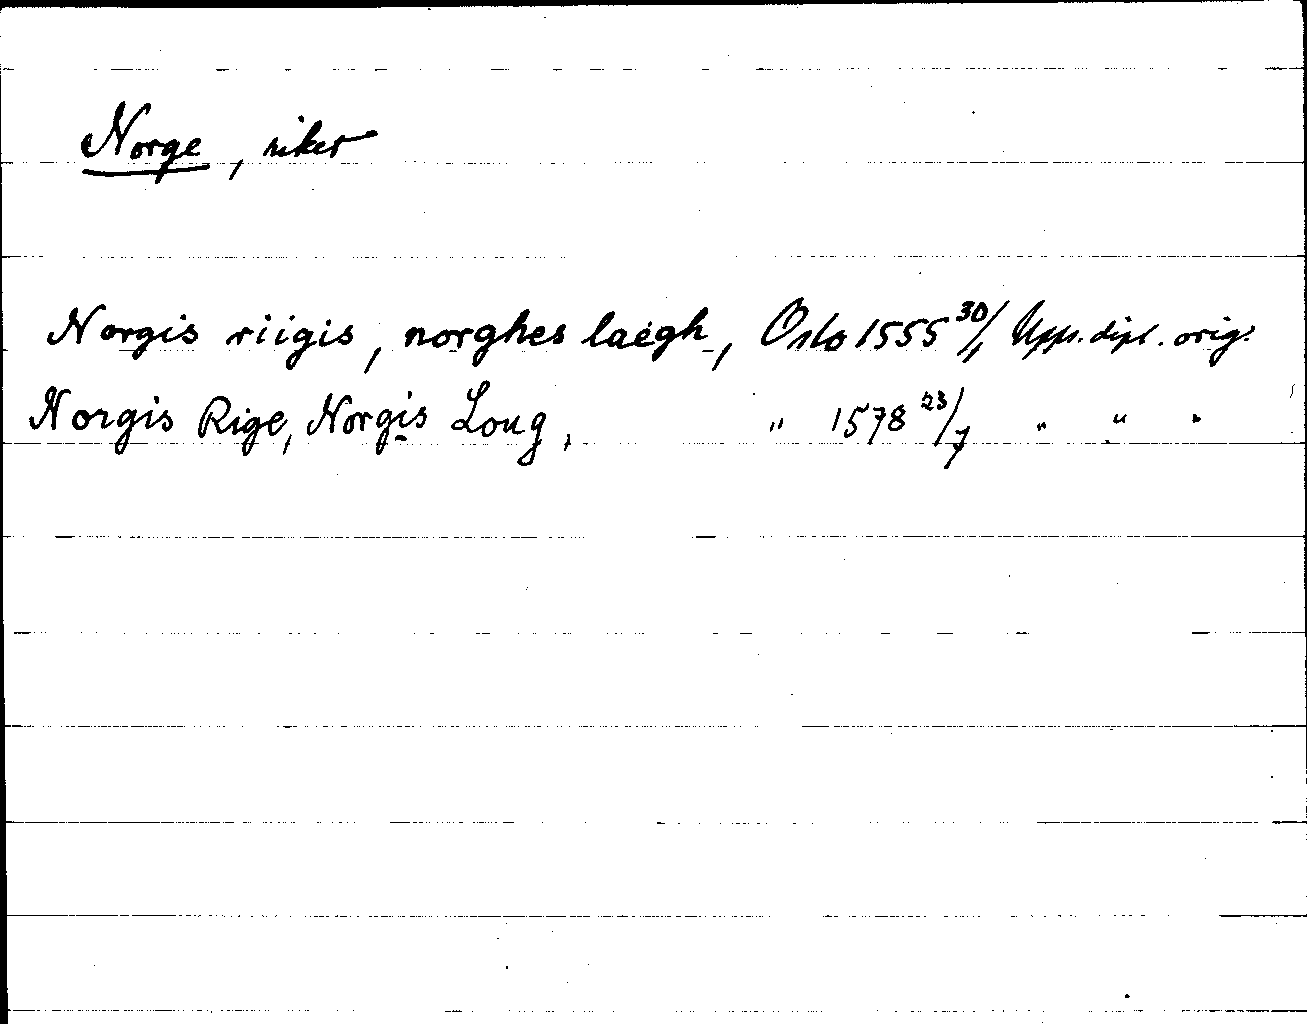 Norge, riket
Norgis riigis, norghes laegh, Oslo 1555 30/1 Upps. dipl. orig.
Norgis Rige, Norgis Loug, " 1578 23/7 " " "